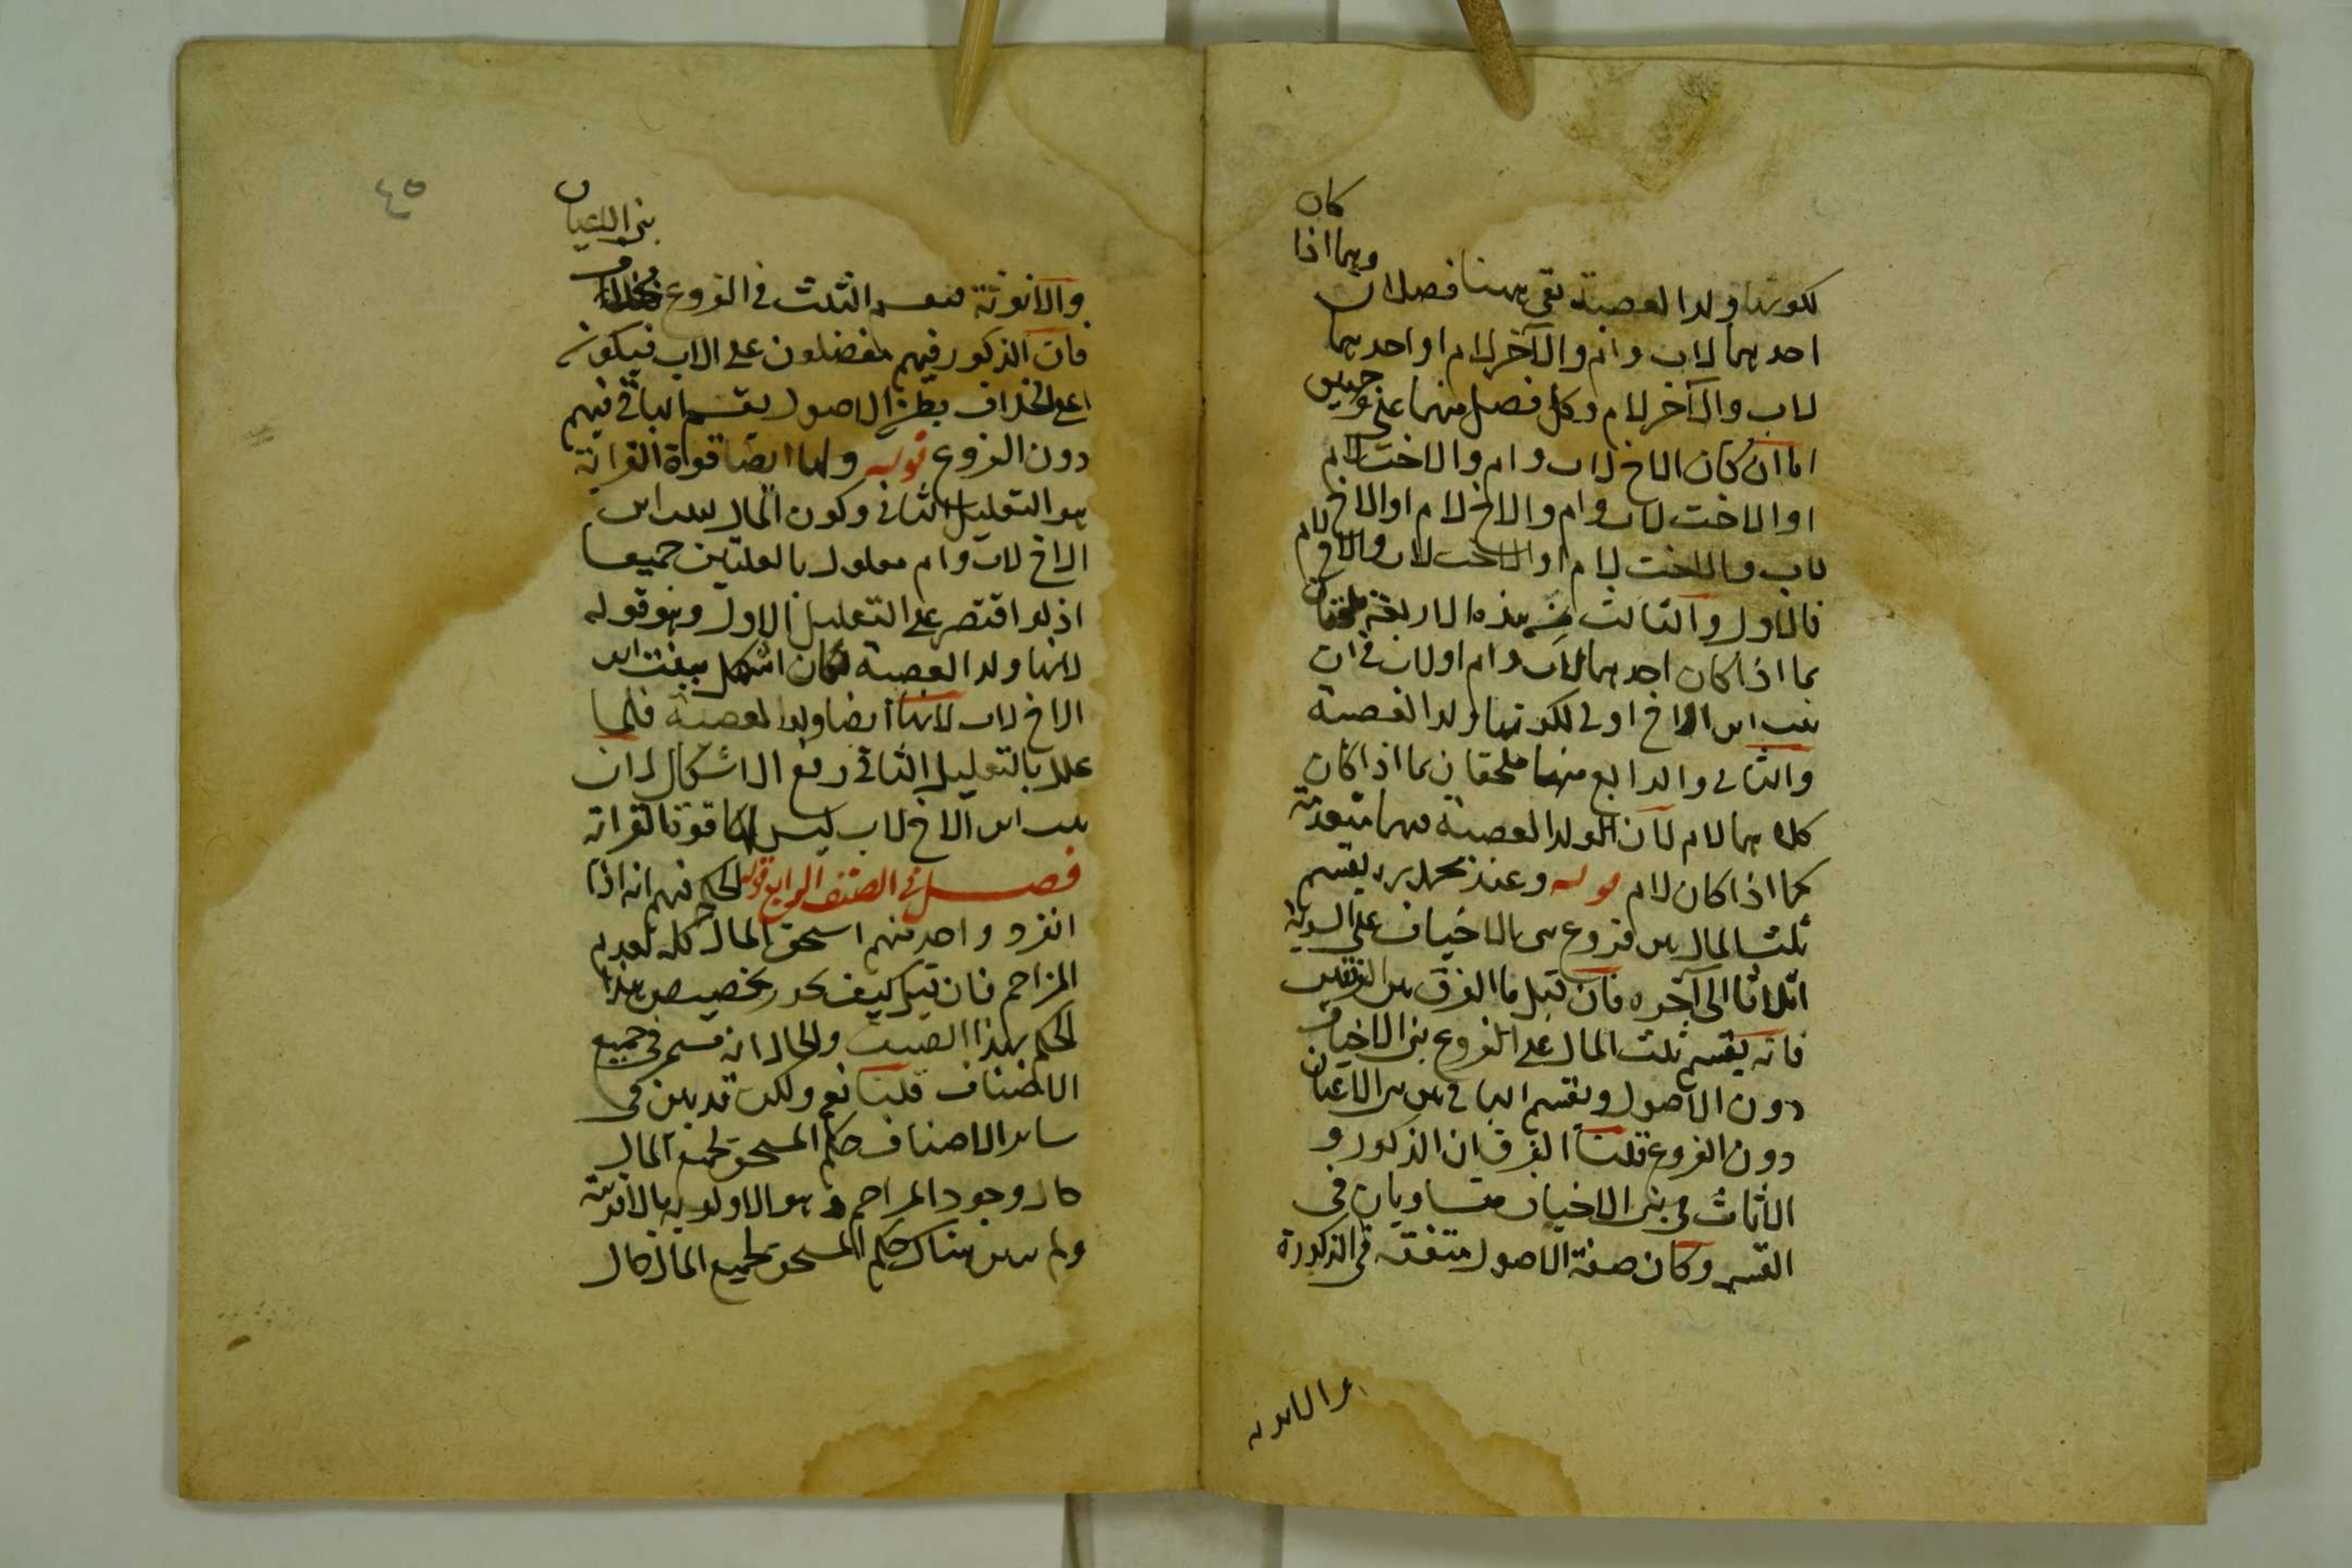 لكونها ولد العصبة بقى ههنا فصلان وهما اذا كان
احدهما لاب وام والآخر لام او احدهما
لاب والآخر لام وكل فصل منهما على وجهين
اما ان كان الاخ لاب وام والاخت لام
او الاخت لاب وام والاخ لام او الاخ
لاب والاخت لام او الاخت لاب والاخ لام
فالاول والثالث من هذه الاربعة ملحقان
بما اذا كان احدهما لاب وام او لاب في ان
بنت ابن الاخ اولى لكونها ولد العصبة
والثانى والرابع منها ملحقان بما اذا كان
كلاهما لام لان الولد العصبة فيهما
كما اذا كان لام قوله وعند محمد يقسم
ثلث المال بين فروع بنى الاخياف على السوية
اثلاثا الى آخره فان قيل ما الفرق بين الفريقين
فانه يقسم ثلث المال على الفروع بنى الاخياف
دون الاصول ويقسم الباقى بين بنى الاعيان
دون الفروع قلنا الفرق ان الذكور و
الاناث فى بنى الاخياف متساويان فى
القسم وكان صفة الاصول متفقة فى الذكورة
والانوثة
٤٥
والانوثة فيقسم الثلث فى الفروع بخلاف بنى الاعيان
فان الذكور فيهم مفضلون على الاب فيكون
على الخلاف بطن الاصول يقسم الباقى فيهم
دون الفروع قوله ولها ايضا قوة القرابة
هو التعليل الثانى وكون المال لبنت ابن
الاخ لاب وام معلول بالعلتين جميعا
اذ لو اقتصر على التعليل الاول وهو قوله
لانها ولد العصبة لكان اشكل ببنت ابن
الاخ لاب لانها ايضا ولد العصبة فلما
علل بالتعليل الثانى رفع الاشكال لان
بنت ابن الاخ لاب ليس لها قوة القرابة
فصل فى الصنف الرابع قوله الحكم فيهم انه اذا
انفرد واحد منهم استحق المال كله لعدم
المزاحم فان قيل كيف يجوز تخصيص هذا
الحكم بهذا الصنف والحال انه مستمر فى جميع
الاصناف قلنا نعم ولكن قد بين فى
سائر الاصناف حكم المستحق لجميع المال
حال وجود المزاحم وهو الاولوية بالاقربية
ولم يبين هناك حكم المستحق لجميع المال حال